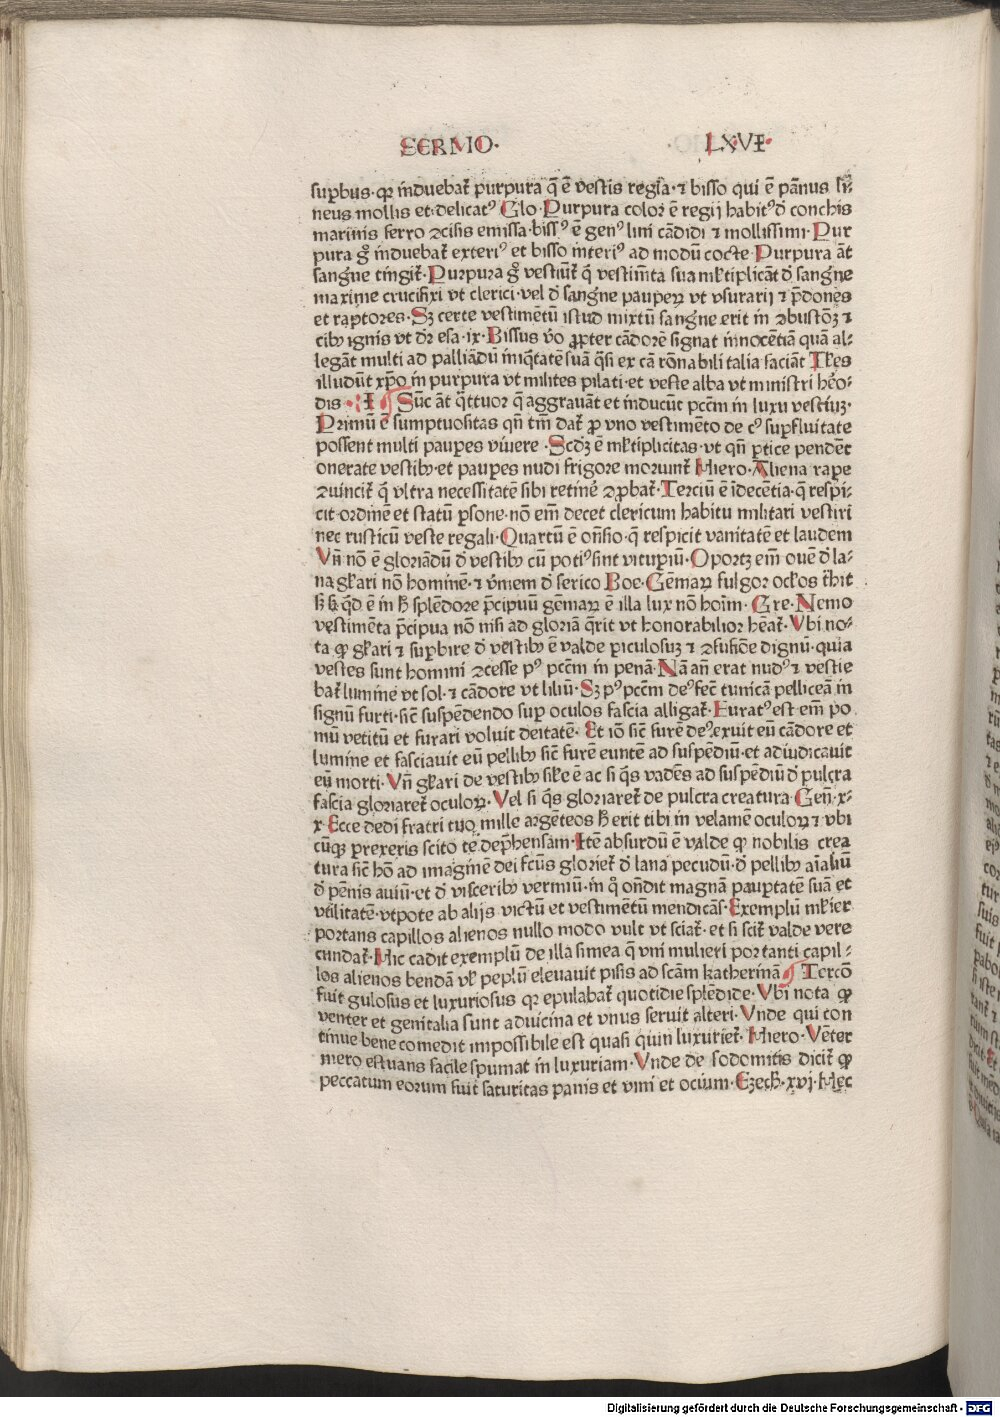 SERMO· LXVI·
supbus·qꝛ induebat᷑ purpura q̄ ē vestis regia·⁊ bisso qui ē pānus li-
neus mollis et·delicatꝰ Glo·Purpura color ē regij habitꝰ đ conchis
marinis ferro ꝯcisis emissa·bissꝰ ē genꝰ lini cādidi ⁊ mollissimi·Pur
pura g̊ induebat᷑ exteriꝰ et bisso interiꝰ ad modū cocte·Purpura āt
sangne tingit᷑·Purpura g̊ vestiūt᷑ q̄ vestimēta sua ml̃tiplicāt đ sangne
maxime crucifixi vt clerici·vel đ sangne pauperꝝ vt vsurarij ⁊ p̄dones
et raptores·Sꝫ certe vestimētū istud mixtū sangne erit in ꝯbustōꝫ ⁊
cibꝰ ignis vt dr̄ esa·ix·Bissus v̄o ꝓpter cādorē signat innocētiā quā al-
legāt multi ad palliādū iniq̇tatē suā q̄si ex cā rōnabili talia faciāt Tl̃es
illudūt xp̄o in purpura vt milites pilati·et veste alba vt ministri hēo-
dis·:I Sūt āt q̄ttuor q̄ aggrauāt et inducūt pctm̄ in luxu vestiuꝫ·
Primū ē sumptuositas qn̄ tm̄ dat᷑ ꝓ vno vestimēto de cꝰ supfluitate
possent multi paupes viuere·Scđꝫ ē ml̃tiplicitas·vt qn̄ ꝑtice pendēt
onerate vestibꝰ·et paupes nudi frigore moriunt᷑ Hiero·Aliena rape
ꝯuincit᷑ q̄ vltra necessitatē sibi retinẽ ꝯꝓbat᷑·Terciū ē īdecētia·q̄ respi-
cit·ordinē et statū ꝑsone·nō em̄ decet clericum habitu militari vestiri
nec rusticū veste regali·Quartū ē oñsio·q̄ respicit vanitatē et laudem
Vñ nō ē gloriādū đ vestibꝰ cū potiꝰ sint vitupiū·Oportꝫ em̄ ouē đ la-
na gl̃ari nō hominē·⁊ v̄mem đ serico Boe·Gēmaꝝ fulgor ocl̃os t̄hit
ē in ħ splēdore p̄cipuū gēmaꝝ ē illa lux nō hoīm·Gre·Nemo
vestimēta p̄cipua nō nisi ad gloriā q̄rit vt honorabilior hēat᷑·Vbi no-
ta ꝙ gl̃ari ⁊ supbire đ vestibꝰ ē valde piculosuꝫ ⁊ ꝯfusiōe dignū·quia
vestes sunt homini ꝯcesse pꝰ pctm̄ in penā·Nā añ erat nudꝰ ⁊ vestie
bat᷑ lumine vt sol·⁊ cādore vt liliū·Sꝫ pꝰ pctm̄ deꝰ fec̄ tunicā pelliceā in
signū furti·sic̄ suspēdendo sup oculos fascia alligat᷑·Furatꝰ est em̄ po
mū vetitū et furari voluit deitatē·Et iō sic̄ furē deꝰ exuit eū cādore et
lumine et fasciauit eū pellibꝰ sic̄ furē euntē ad suspēdiū·et adiudicauit
eū morti·Vñ gl̃ari de vestibꝰ sil̃e ē ac si q̇s vadēs ad suspēdiū đ pulcra
fascia gloriaret᷑ oculoꝝ·Vel si q̇s gloriaret᷑ de pulcra creatura·Geñ·x-
x·Ecce dedi fratri tuo mille argēteos ħ erit tibi in velamē oculoꝝ ⁊ vbi
cūqꝫ prexeris scito te dep̄hensam·Itē absurdū ē valde ꝙ nobilis crea
tura sic̄ hō ad imaginē dei fcūs gloriet᷑ đ lana pecudū·đ pellibꝰ aīaliū
đ pēnis auiū·et đ visceribꝰ vermiū·in q̊ oñdit magnā pauptatē suā et
vtilitatē·vtpote ab alijs victū et vestimētū mendicās·Exemplū ml̃ier
portans capillos alienos nullo modo vult vt sciat᷑·et si scit᷑ valde vere
cundat᷑·Hic cadit exemplū de illa simea q̄ vni mulieri portanti capil-
los alienos bendā vl̃ peplū eleuauit pisis ad scām katherinā Tercō
fuit gulosus et luxuriosus qꝛ epulabat᷑ quotidie splēdide·Vbi nota ꝙ
venter et genitalia sunt aduicina et vnus seruit alteri·Vnde qui con
tinue bene comedit impossibile est quasi quin luxuriet᷑·Hiero·Vēter
mero estuans facile spumat in luxuriam·Vnde de sodomitis dicit᷑ ꝙ
peccatum eorum fuit saturitas panis et vini et ocium·Ezech·xvj·Hec
Digitalisierung gefördert durch die Deutsche Forschungsgemeinschaft - DFG